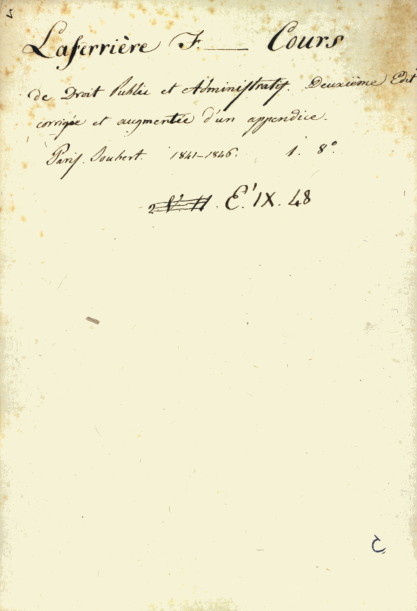 Laferrière F—— Cours
de Droit Public et Administratif. Deuxième Edit
corrigée et augmentée d'un appendice.
Paris. Joubert. 1841-1846. 1. 8°
E.' IX. 48